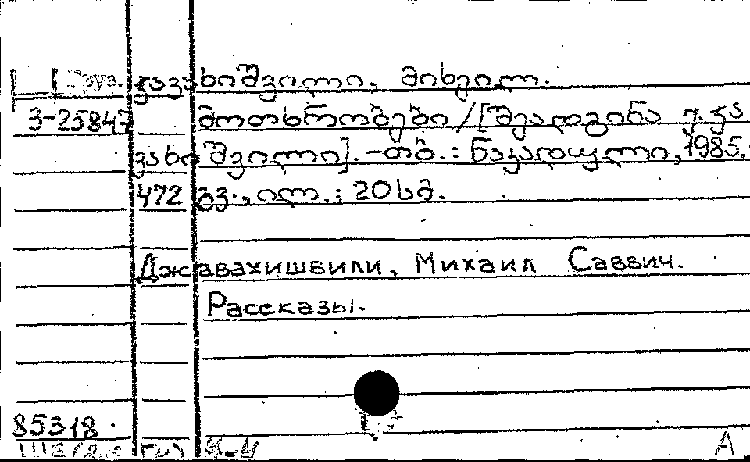 ჯავახიშვილი, მიხეილ.
3-25847 მოთხრობები /[შეადგინა ქ. ჯა
ვახიშვილი]. -თბ.: ნაკადული, 1985.
472 გვ., ილ.; 20 სმ.
Джавахишвили, Михаил Саввич.
Рассказы.
85318.
A